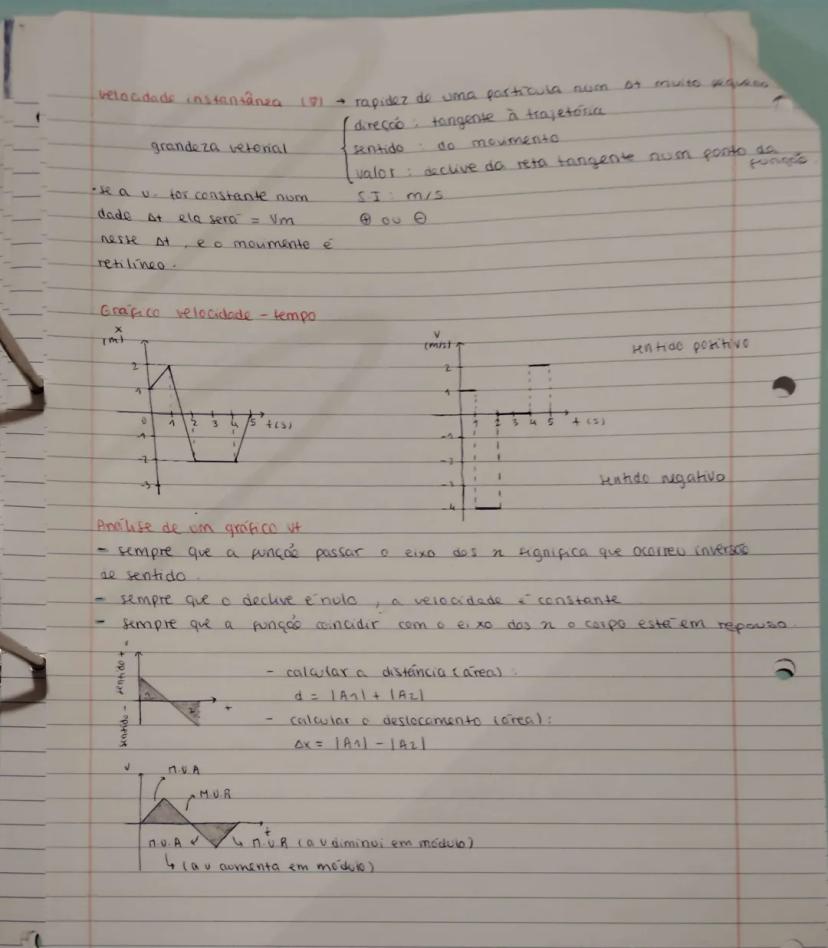 velocidade instantânea (v⃗) → rapidez de uma partícula num Δt muito pequeno
direção: tangente à trajetória
grandeza vetorial sentido: do movimento
valor: declive da reta tangente num ponto da função
• se a v. for constante num S.I: m/s
dade Δt ela será = Vm ⊕ ou ⊖
nesse Δt, e o movimente é
retilíneo.
Gráfico velocidade - tempo
x (m)
2
1
0 1 2 3 4 5 t(s)
-1
-2
-3
v (m/s)
sentido positivo
2
1
1 2 3 4 5 t(s)
-1
-2
-3
sentido negativo
-4
Análise de um gráfico vt
- sempre que a função passar o eixo dos x significa que ocorreu inversão
de sentido.
- sempre que o declive é nulo, a velocidade é constante
- sempre que a função coincidir com o eixo dos x o corpo está em repouso.
sentido - sentido +
t
- calcular a distância (área):
d = |A1| + |A2|
- calcular o deslocamento (área):
Δx = |A1| - |A2|
v
M.U.A
M.U.R
t
M.U.A M.U.R (a v diminui em módulo)
↳ (a v aumenta em módulo)